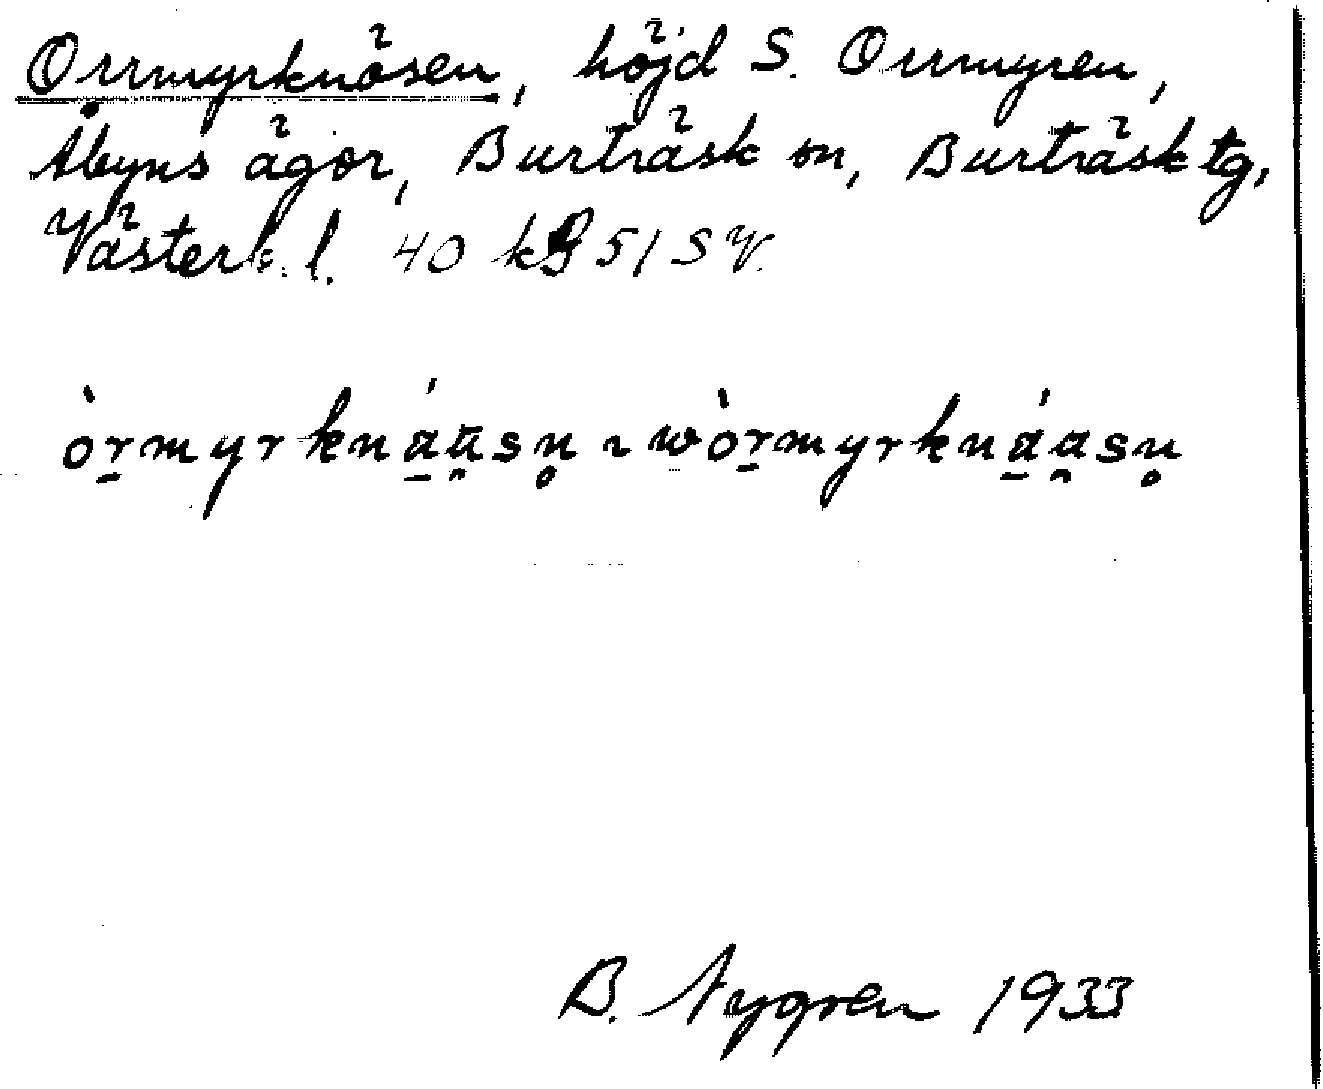 Orrmyrknösen, höjd S. Orrmyren,
Åbyns ägor, Burträsk sn, Burträsk tg,
Västerb. l. 40 kg 51 SV.
òr̠myrkná̠ṵsn̥ ~ wòr̠myrkná̠a̯sn̥
B. Nygren 1933